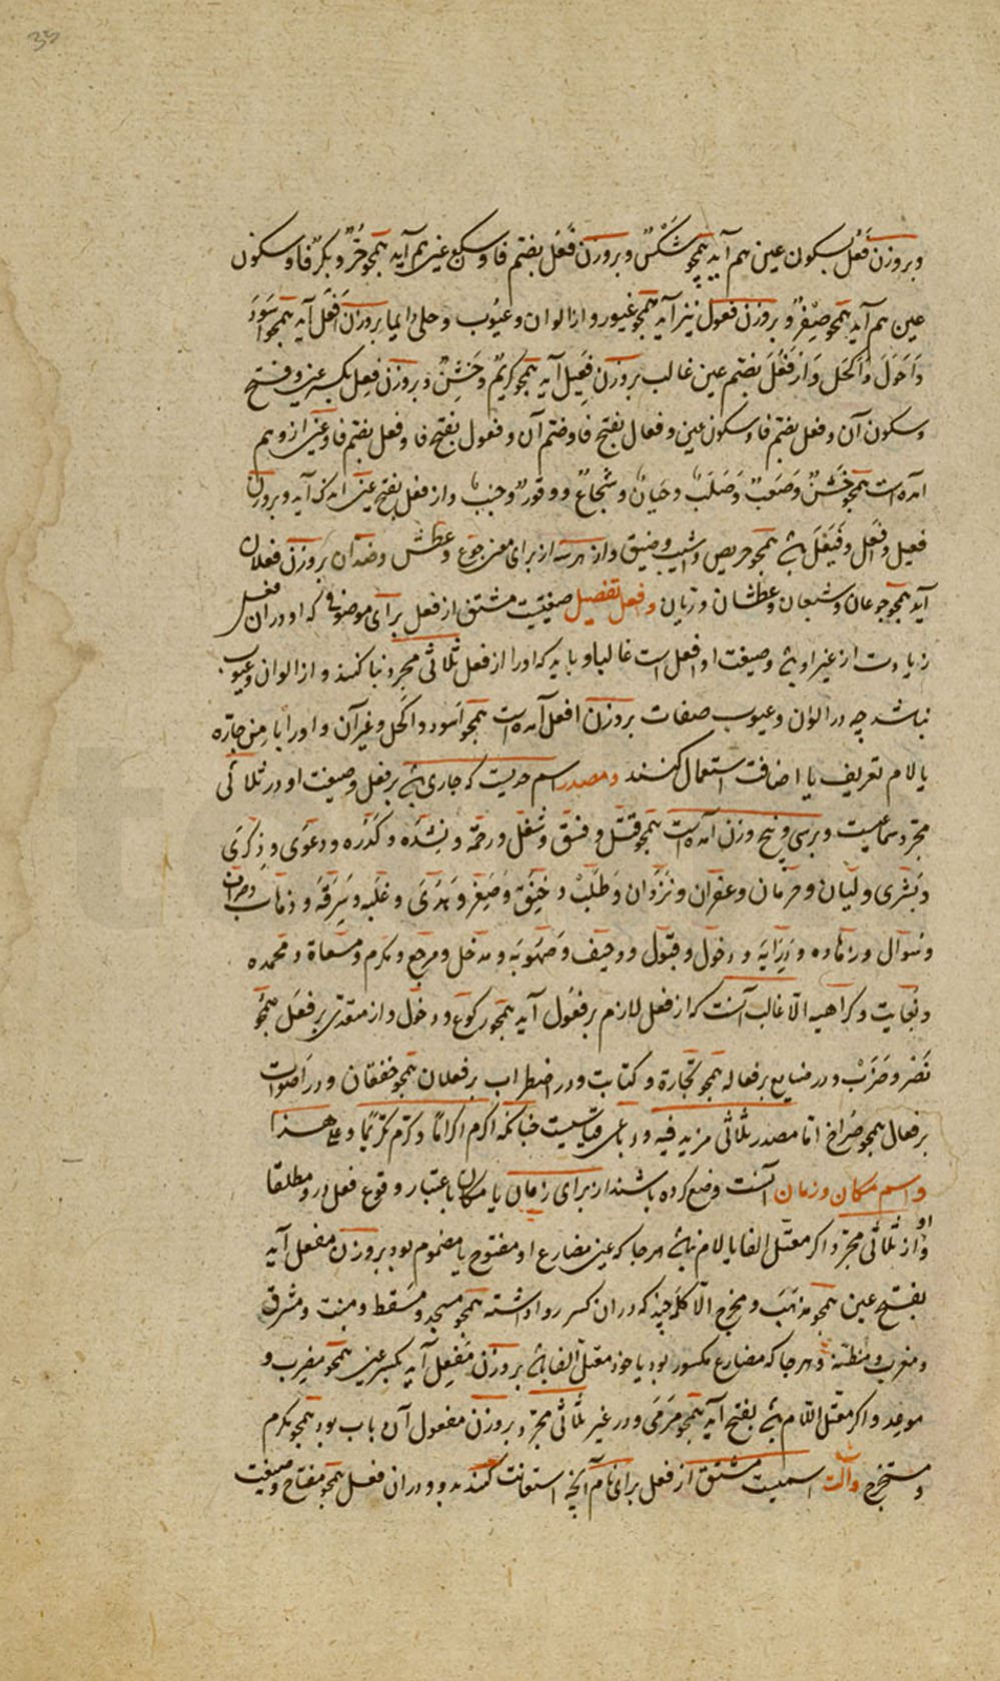 33
وبروزن فَعْل بسکون عین هم آید همچو شَکْسٌ وبروزن فُعْل بضم فا وسکون عین هم آید همچو حُرّ و بکر فا وسکون
عین هم آید همچو صِفْرٌ و بروزن فعول نیز آید همچو غیور و از الوان و عیوب و حلی دایما بروزن اَفْعَل آید همچو اَسْوَدَ
وَاَحْوَلَ وَاَکْحَل وَاز فَعُلَ بضم عین غالب بروزن فَعِیل آید همچو کریمٌ و خَشِنٌ و بروزن فعل بکسر عین و فتح
وسکون آن و فعل بضم فا و سکون عین و فعال بفتح فا و ضم آن و فعول بفتح فا و فعل بضم فا و عین ازو هم
آمده است همچو خَشِنٌ وَصَعْبٌ وَصُلْبٌ و جَبانٌ و شُجاعٌ و وقورٌ و جنبٌ و از فعل بفتح عین اندک آید و بروزن
فعیل و اَفْعل و فَیْعَل باشد همچو حریص و اشیب و ضیق و از هر سه از برای معنی جوع و عطش و ضد آن بروزن فعلان
آید همچو جوعان و شبعان و عطشان و ریان و افعل تفضیل صیغتیست مشتق از فعل برای موصوفی که او در آن فعل
زیادت از غیر او باشد و صیغت او افعل است غالبا و باید که او را از فعل ثلاثی مجرد بنا کنند و از الوان و عیوب
نباشد چه در الوان و عیوب صفات بروزن افعل آمده است همچو اَسود و اکحل و غیر آن و او را با مِن جاره
یا لام تعریف یا اضافت استعمال کنند ومصدر اسم حدثیست که جاری باشد بر فعل و صیغت او در ثلاثی
مجرد سماعیست و بر سی و پنج وزن آمده است همچو قَتْل و فِسْق و شُغْل و رحْمَة و نِشْدَه و کُدْرَه و دعوَی و ذِکْرَی
و بُشْرَی و لَیّان و حرمان و غفران و نَزَوان و طَلَبْ و خَنِق و صِغَر و هُدَی و غَلَبَه و سَرِقَه و ذهاب و صراف
و سُوآل و زهاده و دِرَایَه و دخول و قبول و وجیف و صُهُوبَه و مدخل و مرجع و مکرم و مسعاة و محمده
و بُغایت و کراهیه الا غالب آنست که از فعل لازم بر فعُول آید همچو رکوع و دخول و از متعدی بر فَعْل همچو
نَصْر و ضَرْبْ و در صنایع بر فعاله همچو تجارة و کتابت و در اضطراب بر فعلان همچو خفقان و در اصوات
بر فعال همچو صُراخ امّا مصدر ثلاثی مزید فیه و رباعی قیاسیست چنانکه اکرم اکرامًا و کرّم تکریمًا و علی هذا
واسم مکان وزمان آنست وضع کرده باشند از برای زمان یا مکان باعتبار وقوع فعل درو مطلقا
او از ثلاثی مجرد اگر معتل الفا یا لام نباشد هر جا که عین مضارع او مفتوح یا مضموم بود بروزن مَفْعَل آید
بفتح عین همچو مَذهَب و مخرج الّا کلمه چند که در آن کسر روا داشته همچو مسجد و مَسقط و منبت و مشرق
و مغرب و مظنّة و هر جا که مضارع مکسور بود یا خود معتل الفا باشد بروزن مَفعِل آید بکسر عین همچو مضرب و
موعد و اگر معتل اللّام باشد بفتح آید همچو مَرْمَی و در غیر ثلاثی مجرد بروزن مفعول آن باب بود همچو مکرم
و مستخرج وآلت اسمیست مشتق از فعل برای نام آنچه استعانت کنند بدو در آن فعل همچو مفتاح و صیغت